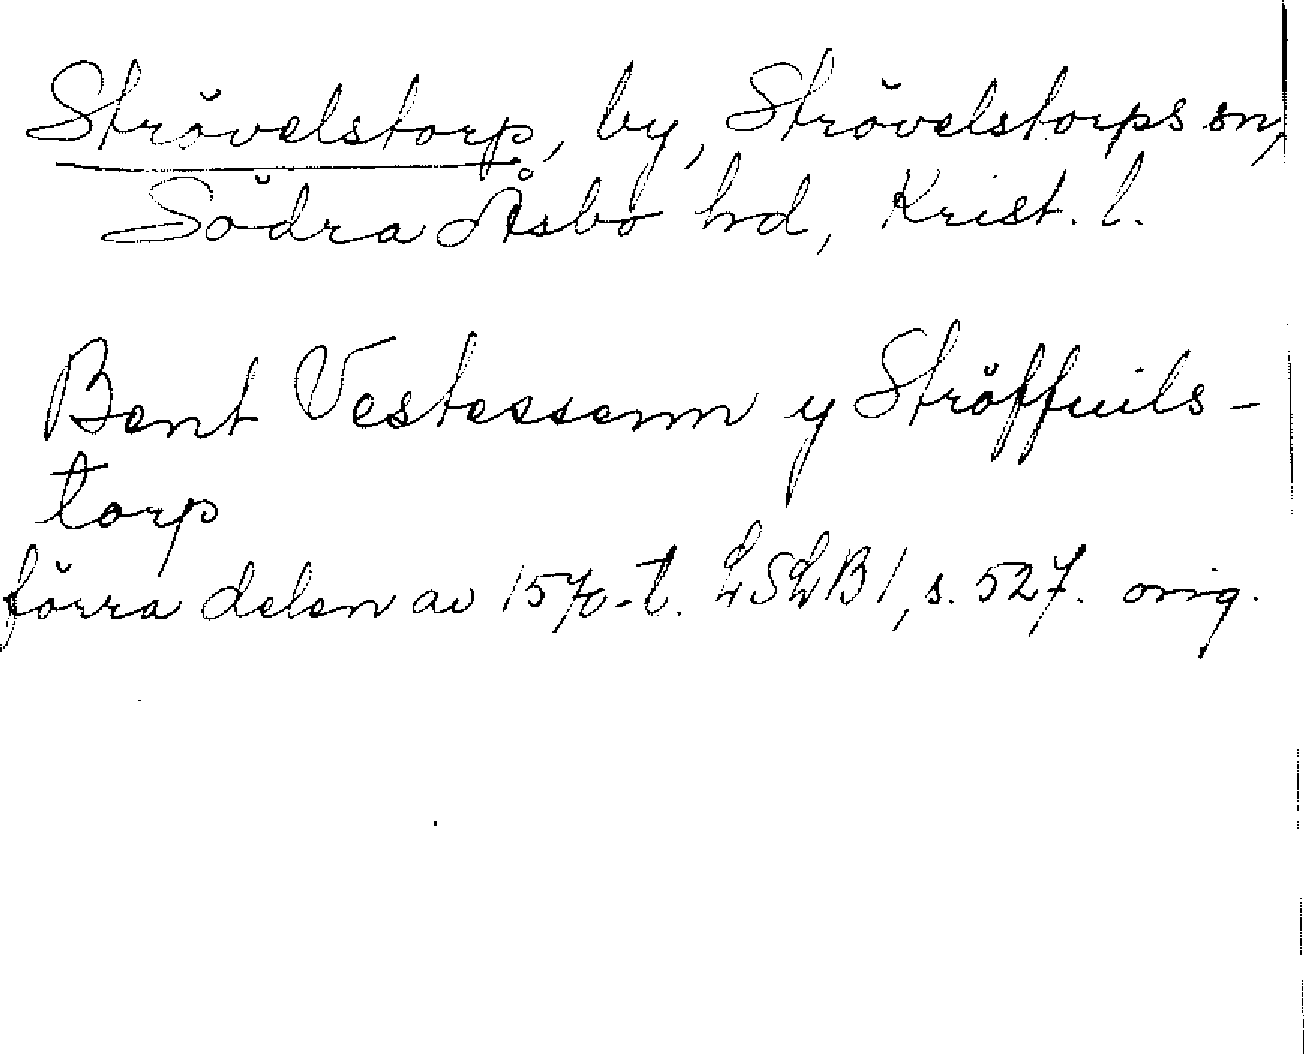 Strövelstorp, by, Strövelstorps sn,
Södra Åsbo hd, Krist. l.
Bent Vestessenn y Ströffuils-
torp
förra delen av 1570-t. LSLB1, s. 527. orig.